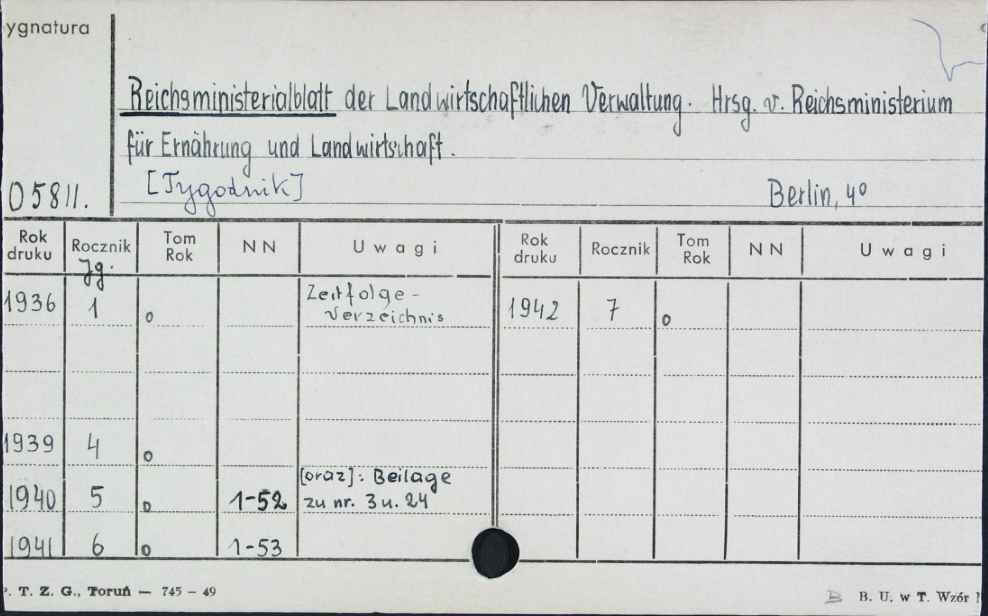 ygnatura
Reichsministerialblatt der Landwirtschaftlichen Verwaltung. Hrsg. v. Reichsministerium
für Ernährung und Landwirtschaft.
[Tygodnik]
O 5811. Berlin, 4º
Rok druku Rocznik Jg. Tom Rok N N Uwagi Rok druku Rocznik Tom Rok N N Uwagi
1936 1 o Zeitfolge- 1942 7 o
Verzeichnis
1939 4 o
[oraz]: Beilage
1940 5 o 1-52 zu nr. 3 u. 24
1941 6 o 1-53
P. T. Z. G., Toruń — 745 – 49 B. U. w T. Wzór